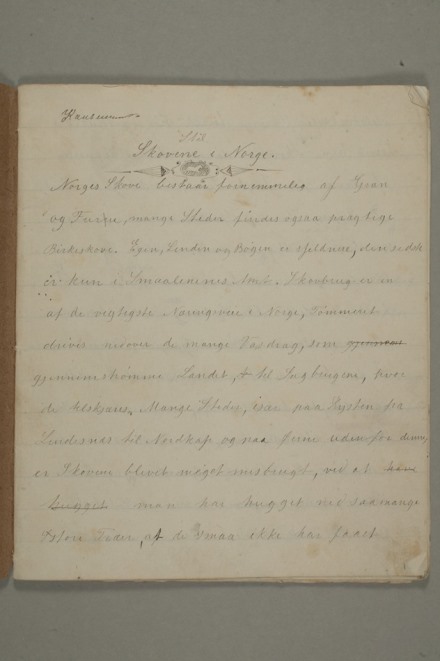 Stil
Skovene i Norge.
Norges Skove bestaar fornemmelig af Gran
og Furru, mange Steder findes ogsaa prægtige
Birkeskove. Egen, Linden og Bøgen er sjeldnere, den sidste
er kun i Smaalenenes Amt. Skovbrug er en
af de vigtigste Næringsveie i Norge, Tømmeret
driver nedover de mange Vasdrag, som gjennem
gjennemstrømme Landet, til Sagbrugene, hvor
de tilskjæres. Mange Steder, især paa Kysten fra
Lindesnæs til Nordkap og paa Øerne udenfor denne,
er Skovene blevet meget misbrugt, ved at have
hugget man har hugget ned saa mange
store Træer, at de smaa ikke har faaet